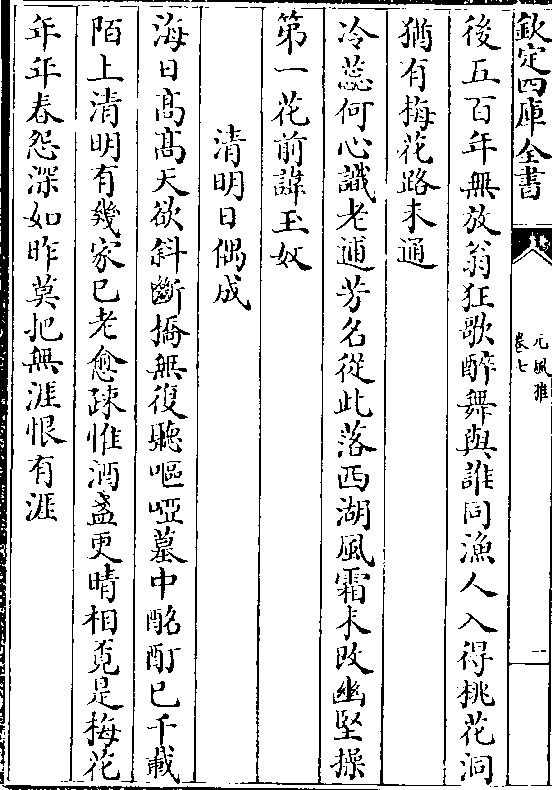 欽定四庫全書
元風雅
卷七
一
後五百年無放翁狂歌醉舞與誰同漁人入得桃花洞
猶有梅花路未通
冷蕊何心識老逋芳名從此落西湖風霜未改幽堅操
第一花前諱玉奴
清明日偶成
海日髙髙天欲斜斷橋無復聽嘔啞墓中酩酊已千載
陌上清明有幾家已老愈疎惟酒盞更晴相覔是梅花
年年春怨深如昨莫把無涯恨有涯